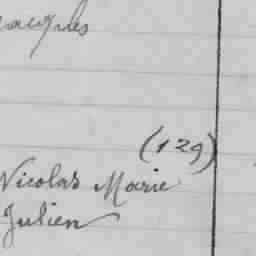 Jacques
(129)
Nicolas Marie
Julien